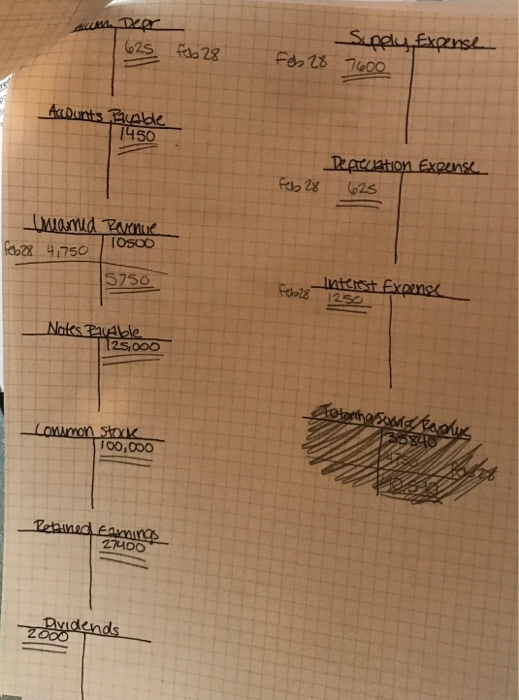 Accum. Depr
625 Feb 28
Accounts Payable
1450
Unearned Revenue
Feb 28 4,750 10500
5750
Notes Payable
125,000
Common Stock
100,000
Retained Earnings
27400
Dividends
2000
Supply Expense
Feb 28 7600
Depreciation Expense
Feb 28 625
Interest Expense
Feb 28 1250
Tutoring Service Revenue
35840
4750 Feb 28